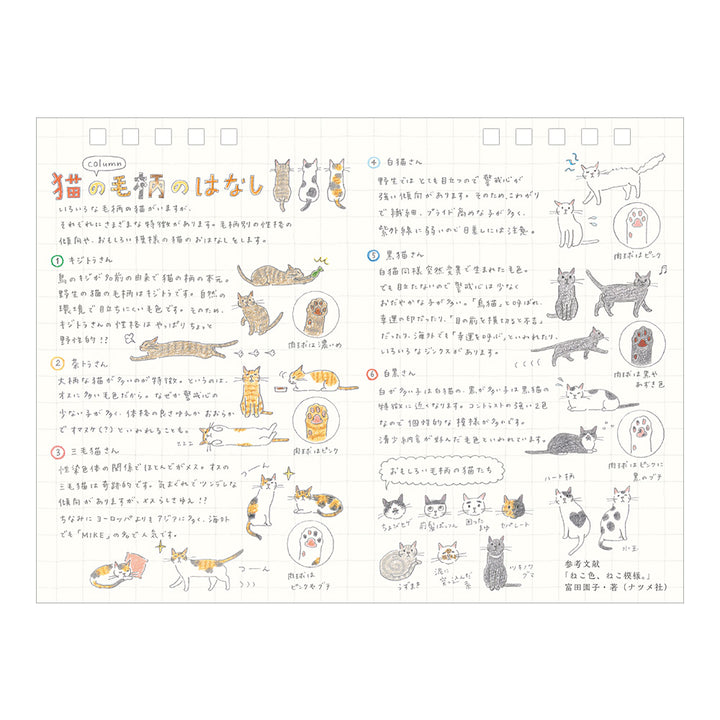 column
猫の毛柄のはなし
いろいろな毛柄の猫がいますが、
それぞれにさまざまな特徴があります。毛柄別の性格の
傾向や、おもしろい模様の猫のおはなしをします。
1 キジトラさん
鳥のキジが名前の由来で猫の柄の本元。
野生の猫の毛柄はキジトラです。自然の
環境で目立ちにくい毛色です。そのため、
キジトラさんの性格はやっぱりちょっと
野性的!?
肉球は濃いめ
2 茶トラさん
大柄な猫が多いのが特徴。というのは、
オスに多い毛色だから。なぜか警戒心の
少ない子が多く、体格の良さゆえかおおらか
でオスマスケ(?)といわれることも。
肉球はピンク
3 三毛猫さん
性染色体の関係でほとんどがメス。オスの
三毛猫は奇跡的です。気まぐれでツンデレな
傾向がありますが、メスらしさゆえ!?
ちなみにヨーロッパよりもアジアに多く、海外
でも「MIKE」の名で人気です。
つーん
つーん
肉球は
ピンクやブチ
4 白猫さん
野生ではとても目立つので警戒心が
強い傾向があります。そのため、こわがり
で繊細、プライド高めな子が多く、
紫外線に弱いので日差しには注意。
肉球はピンク
5 黒猫さん
白猫同様突然変異で生まれた毛色。
でも目立たないので警戒心は少なく
おだやかな子が多い。「烏猫」と呼ばれ、
幸運の印だったり、「目の前を横切ると不吉」
だったり、海外でも「幸運を呼ぶ」といわれたり、
いろいろなジンクスがあります。
肉球は黒や
あずき色
6 白黒さん
白が多い子は白猫の、黒が多い子は黒猫の
特徴に近くなります。コントラストの強い2色
なので個性的な模様が多いです。
夏目漱石が好んだ毛色といわれています。
肉球はピンクに
黒のブチ
おもしろい毛柄の猫たち
ちょびヒゲ
前髪ぱっつん
困った
まゆ
セパレート
うずまき
泥に
突っ込んだ
系
ツキノワ
グマ
ハート柄
水玉
参考文献
「ねこ色、ねこ模様。」
富田園子・著（ナツメ社）